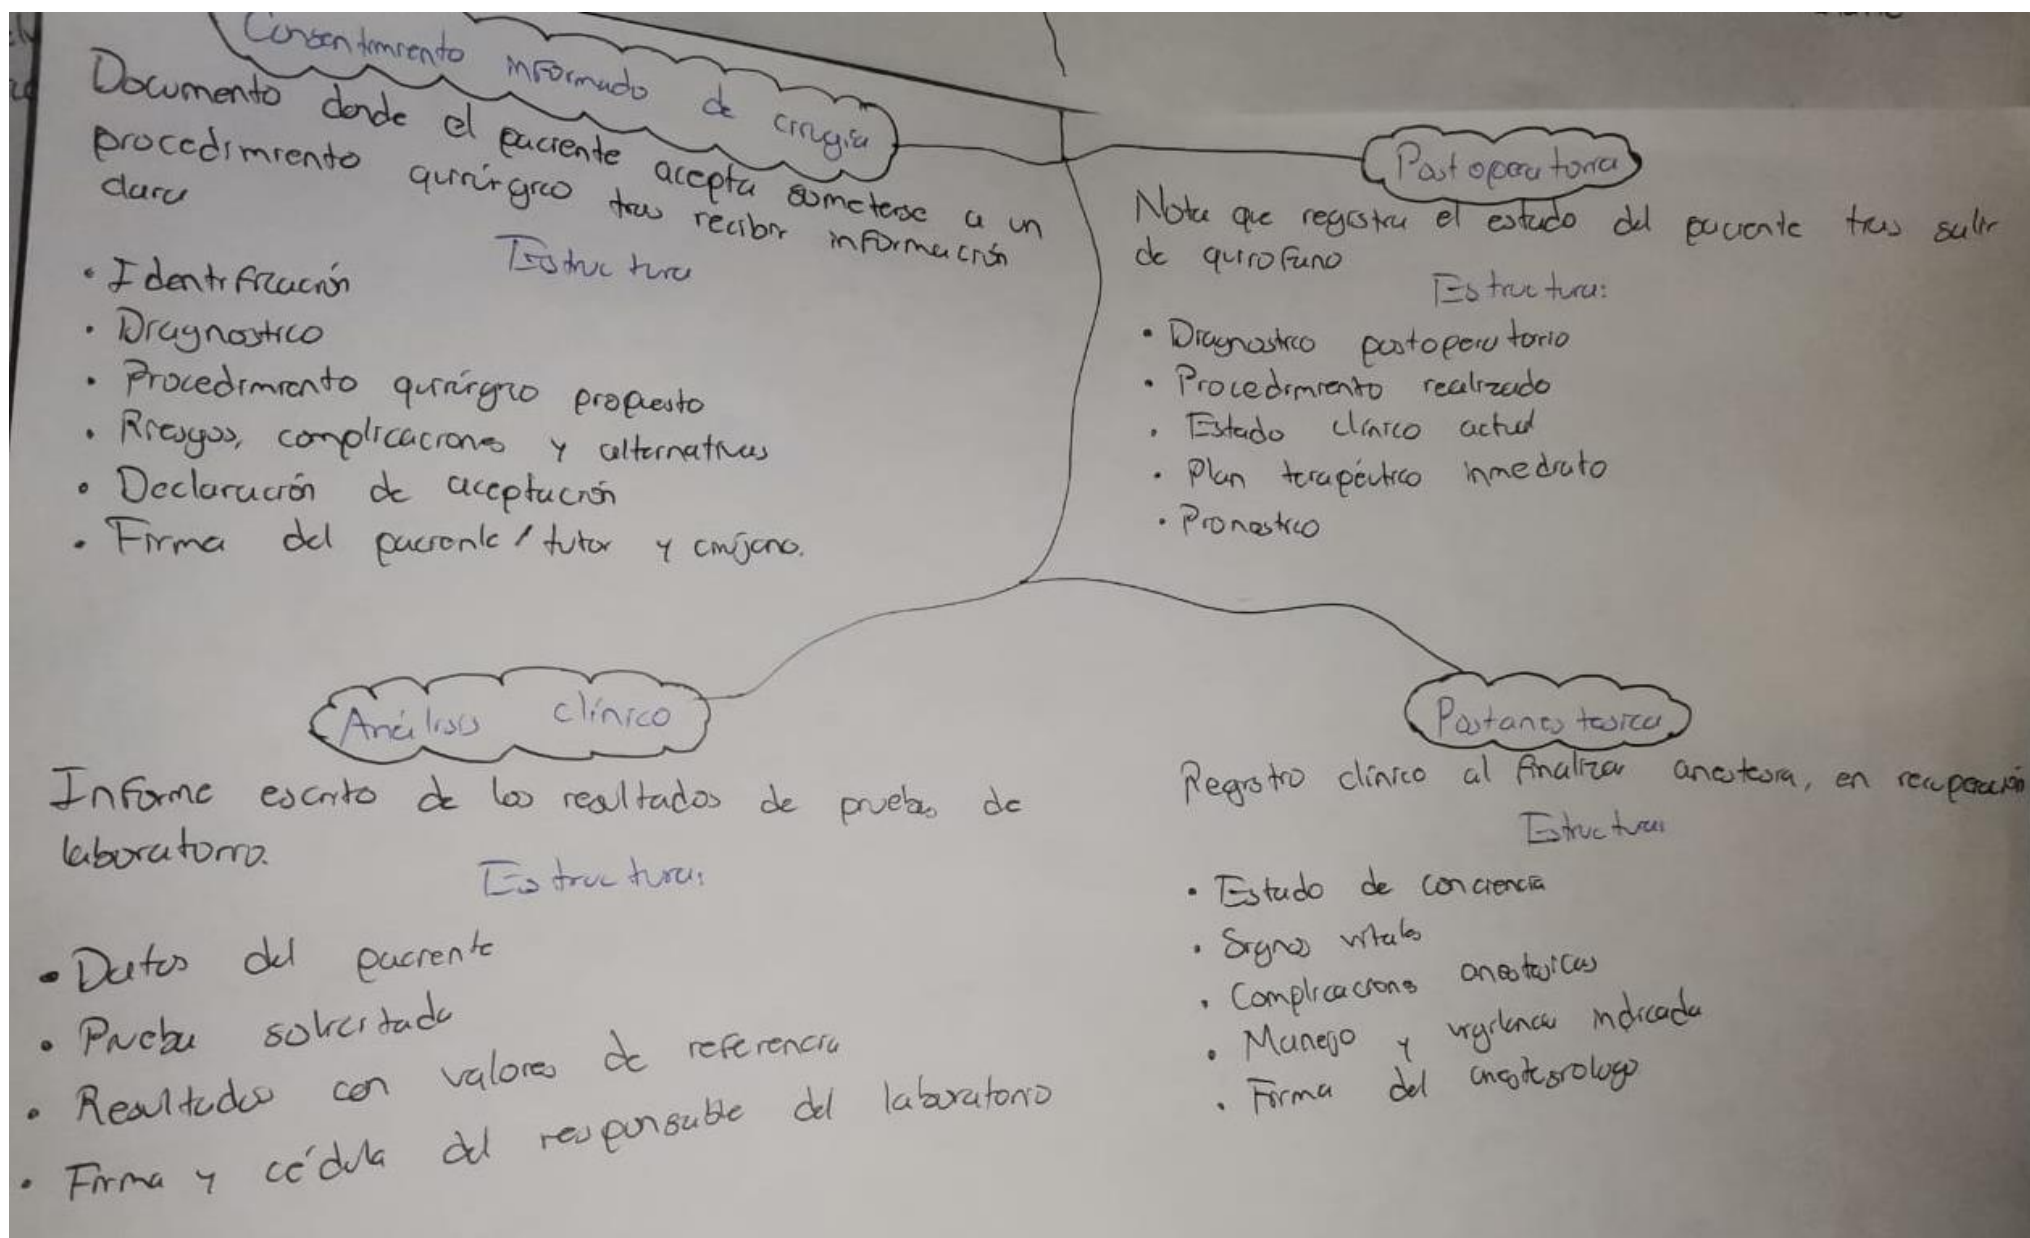 Consentimiento informado de cirugía
Documento donde el paciente acepta someterse a un
procedimiento quirúrgico tras recibir información
clara
Estructura
• Identificación
• Diagnostico
• Procedimiento quirúrgico propuesto
• Riesgos, complicaciones y alternativas
• Declaración de aceptación
• Firma del paciente / tutor y cirujano.
Postoperatoria
Nota que registra el estado del paciente tras salir
de quirofano
Estructura:
• Diagnostico postoperatorio
• Procedimiento realizado
• Estado clínico actual
• Plan terapéutico inmediato
• Pronostico
Análisis clínico
Informe escrito de los resultados de pruebas de
laboratorio.
Estructura:
• Datos del paciente
• Prueba solicitada
• Resultados con valores de referencia
• Firma y cédula del responsable del laboratorio
Postanestesica
Registro clínico al finalizar anestesia, en recuperación
Estructura
• Estado de conciencia
• Signos vitales
• Complicaciones anestesicas
• Manejo y vigilancia indicada
• Firma del anestesiologo